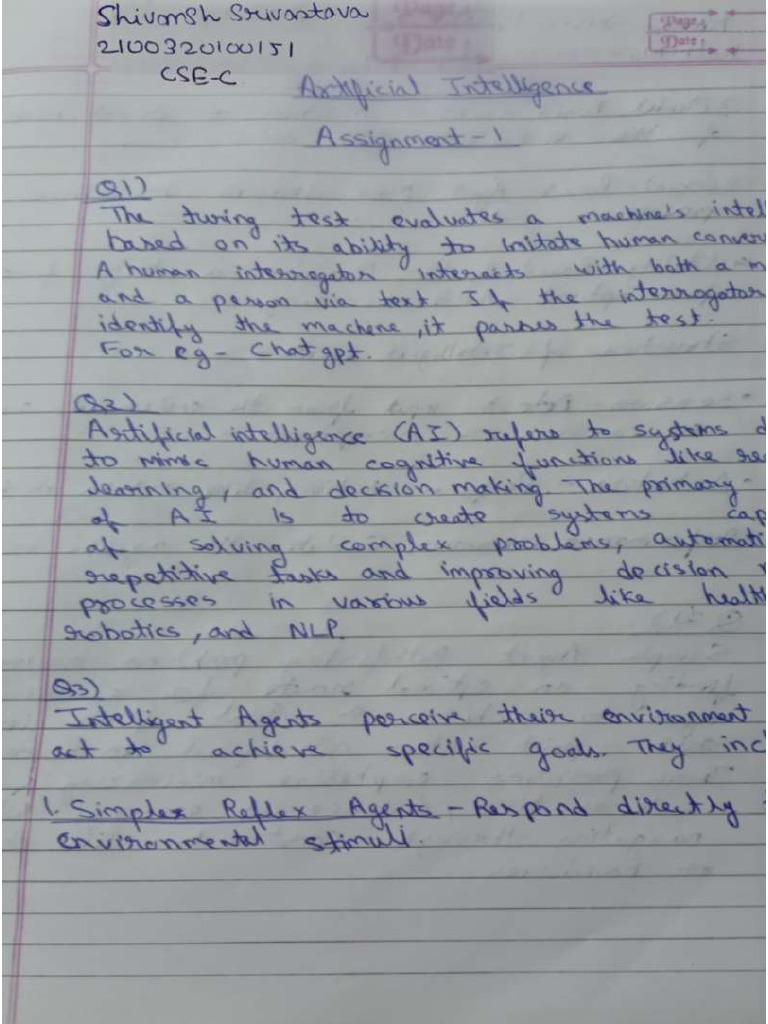 Shivansh Srivastava
2100320100151
CSE-C
Page:
Date:
Artificial Intelligence
Assignment-1
Q1)
The turing test evaluates a machine's intel
based on its ability to imitate human conver
A human interrogator interacts with both a m
and a person via text If the interrogator
identify the machine, it passes the test.
For eg- Chatgpt.
Q2)
Artificial intelligence (AI) refers to systems d
to mimic human cognitive functions like rea
learning, and decision making. The primary
of AI is to create systems cap
of solving complex problems, automati
repetitive tasks and improving decision
processes in various fields like health
robotics, and NLP.
Q3)
Intelligent Agents perceive their environment
act to achieve specific goals. They incl
1. Simplex Reflex Agents - Respond directly
environmental stimuli.